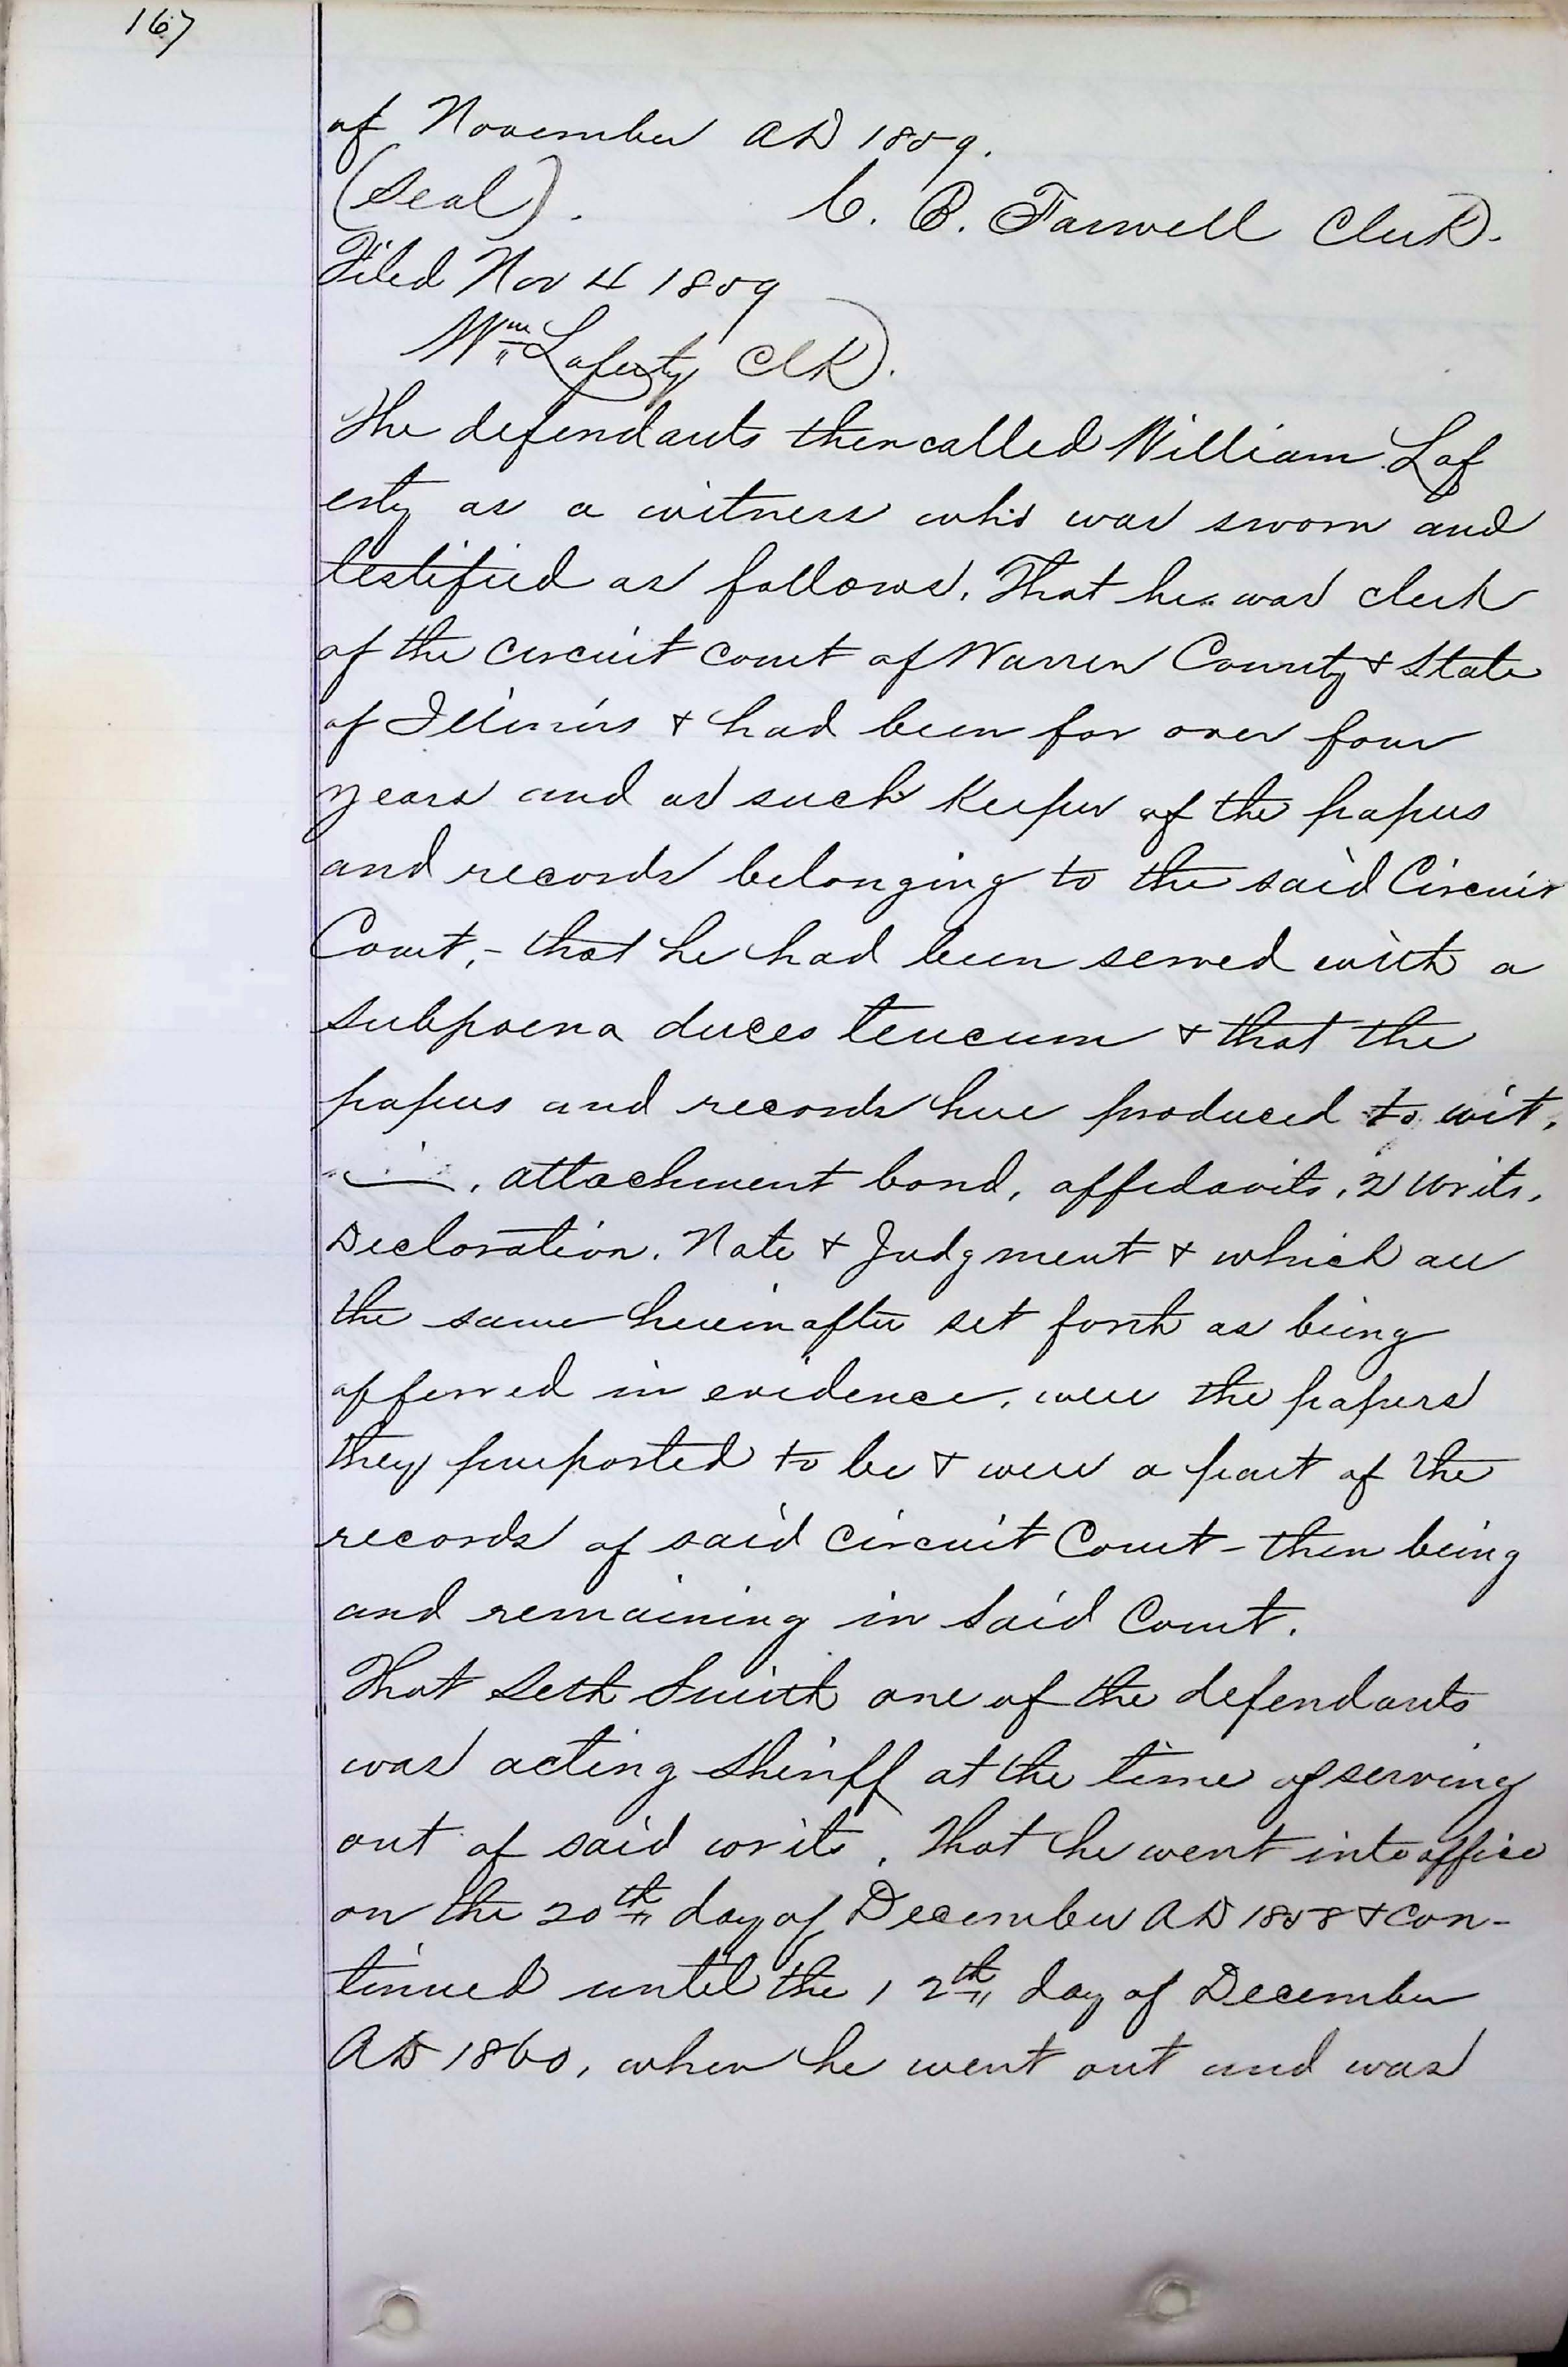 167
of November AD 1859.
(Seal). C. B. Farwell Clerk.
Filed Nov 4 1859
Wm Laferty Clk.
The defendants then called William Laf
erty as a witness who was sworn and
testified as follows. That he was clerk
of the circuit court of Warren County & State
of Illinois & had been for over four
years and as such Keeper of the papers
and records belonging to the said Circuit
Court, - that he had been served with a
subpoena duces tecum & that the
papers and records here produced to wit,
, attachment bond, affidavits, 2 writs,
Declaration. Note & Judgment & which are
the same hereinafter set forth as being
offerred in evidence, were the papers
they purported to be & were a part of the
records of said Circuit Court - then being
and remaining in said Court.
That Seth Smith one of the defendants
was acting Sheriff at the time of serving
out of said writs. That he went into office
on the 20th day of December AD 1858 & con-
tinued until the 12th day of December
AD 1860, when he went out and was